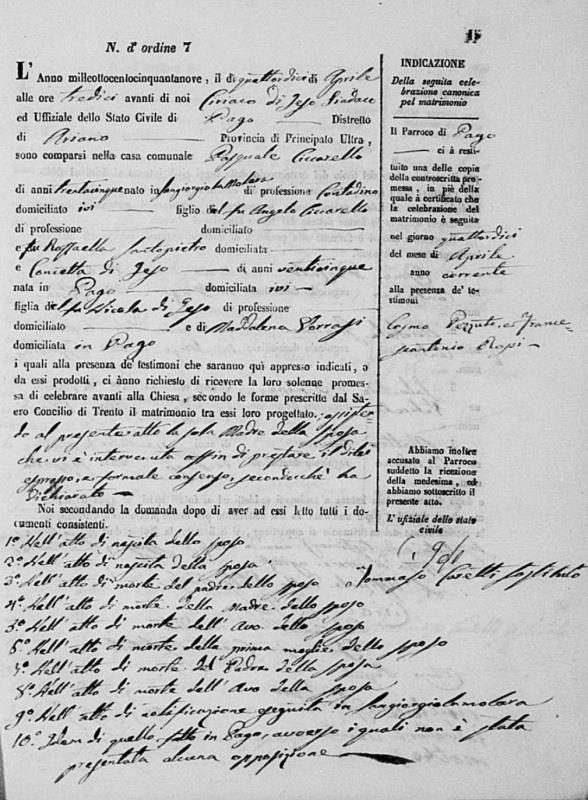 15
N. d'ordine 7
L'Anno millcottocentocinquantanove, il dì quattordici di Aprile
alle ore tredici avanti di noi Ciriaco di Jeso Sindaco
ed Uffiziale dello Stato Civile di Pago Distretto
di Ariano Provincia di Principato Ultra,
sono comparsi nella casa comunale Pasquale Ciccarello
di anni trentacinque nato in Sangiorgio la Molara di professione Contadino
domiciliato ivi figlio del fu Angelo Ciccarello
di professione domiciliato
e fu Raffaella Santopietro domiciliata
e Concetta di Jeso di anni venticinque
nata in Pago domiciliata ivi
figlia del fu Nicola di Jeso di professione
domiciliato e di Maddalena
domiciliata in Pago
i quali alla presenza de' testimoni che saranno quì appresso indicati, e
da essi prodotti, ci ànno richiesto di ricevere la loro solenne promes-
sa di celebrare avanti alla Chiesa, secondo le forme prescritte dal Sa-
cro Concilio di Trento il matrimonio tra essi loro progettato. assisten-
do al presente atto la sola Madre della sposa
che vi è intervenuta affin di prestare il di lei
espresso, e formale consenso, secondocchè ha
dichiarato
Noi secondando la domanda dopo di aver ad essi letto tutti i do-
cumenti consistenti.
1.° Nell'atto di nascita dello sposo
2.° Nell'atto di nascita della sposa
3.° Nell'atto di morte del padre dello sposo
4.° Nell'atto di morte della Madre dello sposo
5.° Nell'atto di morte dell'Avo dello sposo
6.° Nell'atto di morte della prima moglie dello sposo
7.° Nell'atto di morte del Padre della sposa
8.° Nell'atto di morte dell'Avo della sposa
9.° Nell'atto di notificazione seguita in Sangiorgiolamolara
10.° Idem di quello fatto in Pago, avverso i quali non è stata
presentata alcuna opposizione
INDICAZIONE
Della seguita cele-
brazione canonica
pel matrimonio
Il Parroco di Pago
ci à resti-
tuito una delle copie
della controscritta pro-
messa, in piè della
quale à certificato che
la celebrazione del
matrimonio è seguita
nel giorno quattordici
del mese di Aprile
anno corrente
alla presenza de' te-
stimoni
Cosmo Pezzuto, e France-
scantonio Rapi
Abbiamo inoltre
accusato al Parroco
suddetto la ricezione
della medesima, ed
abbiamo sottoscritto il
presente atto.
L'ufiziale dello stato
civile
Tommaso